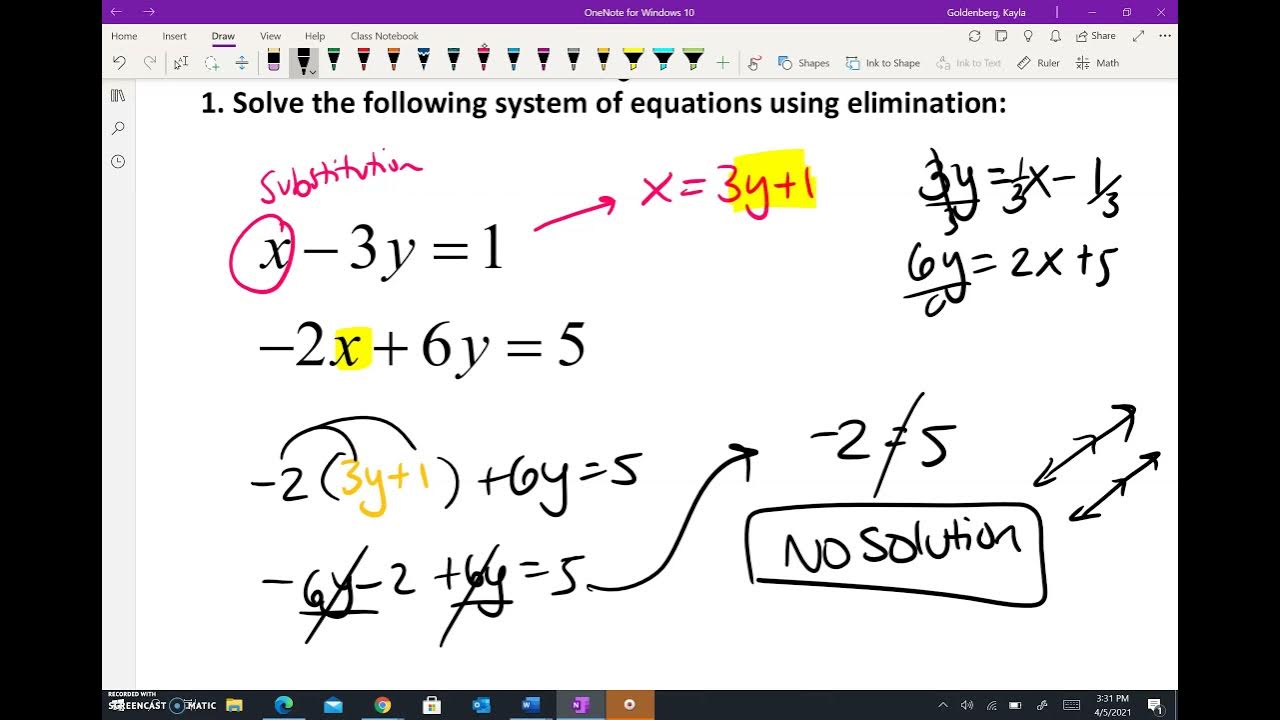 OneNote for Windows 10
Goldenberg, Kayla
Home Insert Draw View Help Class Notebook
Share
Shapes Ink to Shape Ink to Text Ruler Math
1. Solve the following system of equations using elimination:
Substitution
x = 3y+1
x − 3y = 1
−2x + 6y = 5
3y = 1/3x − 1/3
3
6y = 2x + 5
6
−2(3y+1) + 6y = 5
−6y − 2 + 6y = 5
−2 = 5
NO Solution
RECORDED WITH
SCREENCAST MATIC
3:31 PM
4/5/2021
1